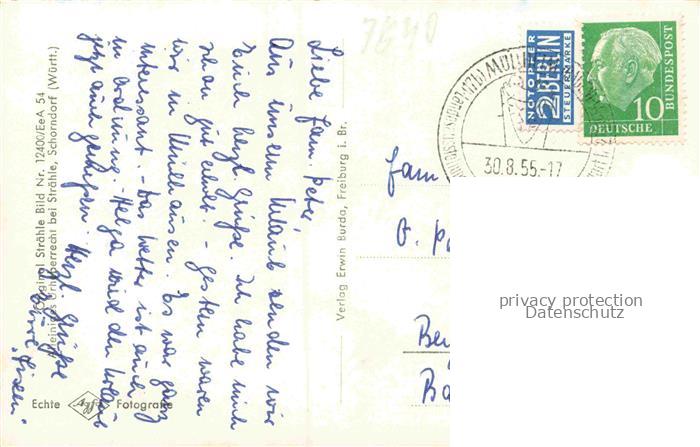 7640
Liebe Fam. Peter!
Aus unserm Urlaub senden wir
Euch herzl. Grüße. Ich habe mich
schon gut erholt. – Gestern waren
wir in Mülhausen. Es war ganz
interessant. – Das Wetter ist auch
in Ordnung. – Helga wird der Urlaub
jetzt auch
Herzl. Grüße
Original Strähle Bild Nr. 12400/EeA 54
Alleiniges Urheberrecht bei Strähle, Schorndorf (Württ.)
Echte Agfa Fotografie
Verlag Erwin Burda, Freiburg i. Br.
NOTOPFER
2 BERLIN
STEUERMARKE
10
DEUTSCHE
BUNDESPOST
30.8.55.-17
Fam
privacy protection
Datenschutz